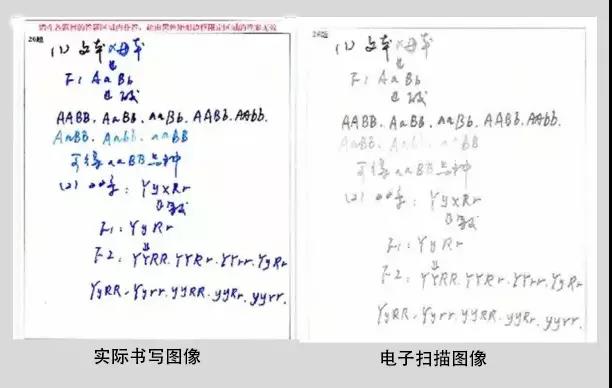 请在各题目的答题区域内作答，超出黑色矩形边框限定区域的答案无效
26题
(1) 父本×母本
↓
F1 AaBb
↓
AABB、AaBB、aaBb、AABb、AAbb、
AaBB、Aabb、aaBB
可得aaBB品种
(2)
: YyxRr
F1: YyRr
↓
F2: YYRR.YYRr.YYrr.YyRr
YyRR.Yyrr.yyRR.yyRr.yyrr.
26题
(1) 父本×母本
↓
F1 AaBb
↓
AABB、AaBB、aaBb、AABb、AAbb、
AaBB、Aabb、aaBB
可得aaBB品种
(2)
: YyxRr
F1: YyRr
↓
F2: YYRR.YYRr.YYrr.YyRr
YyRR.Yyrr.yyRR.yyRr.yyrr.
实际书写图像
电子扫描图像